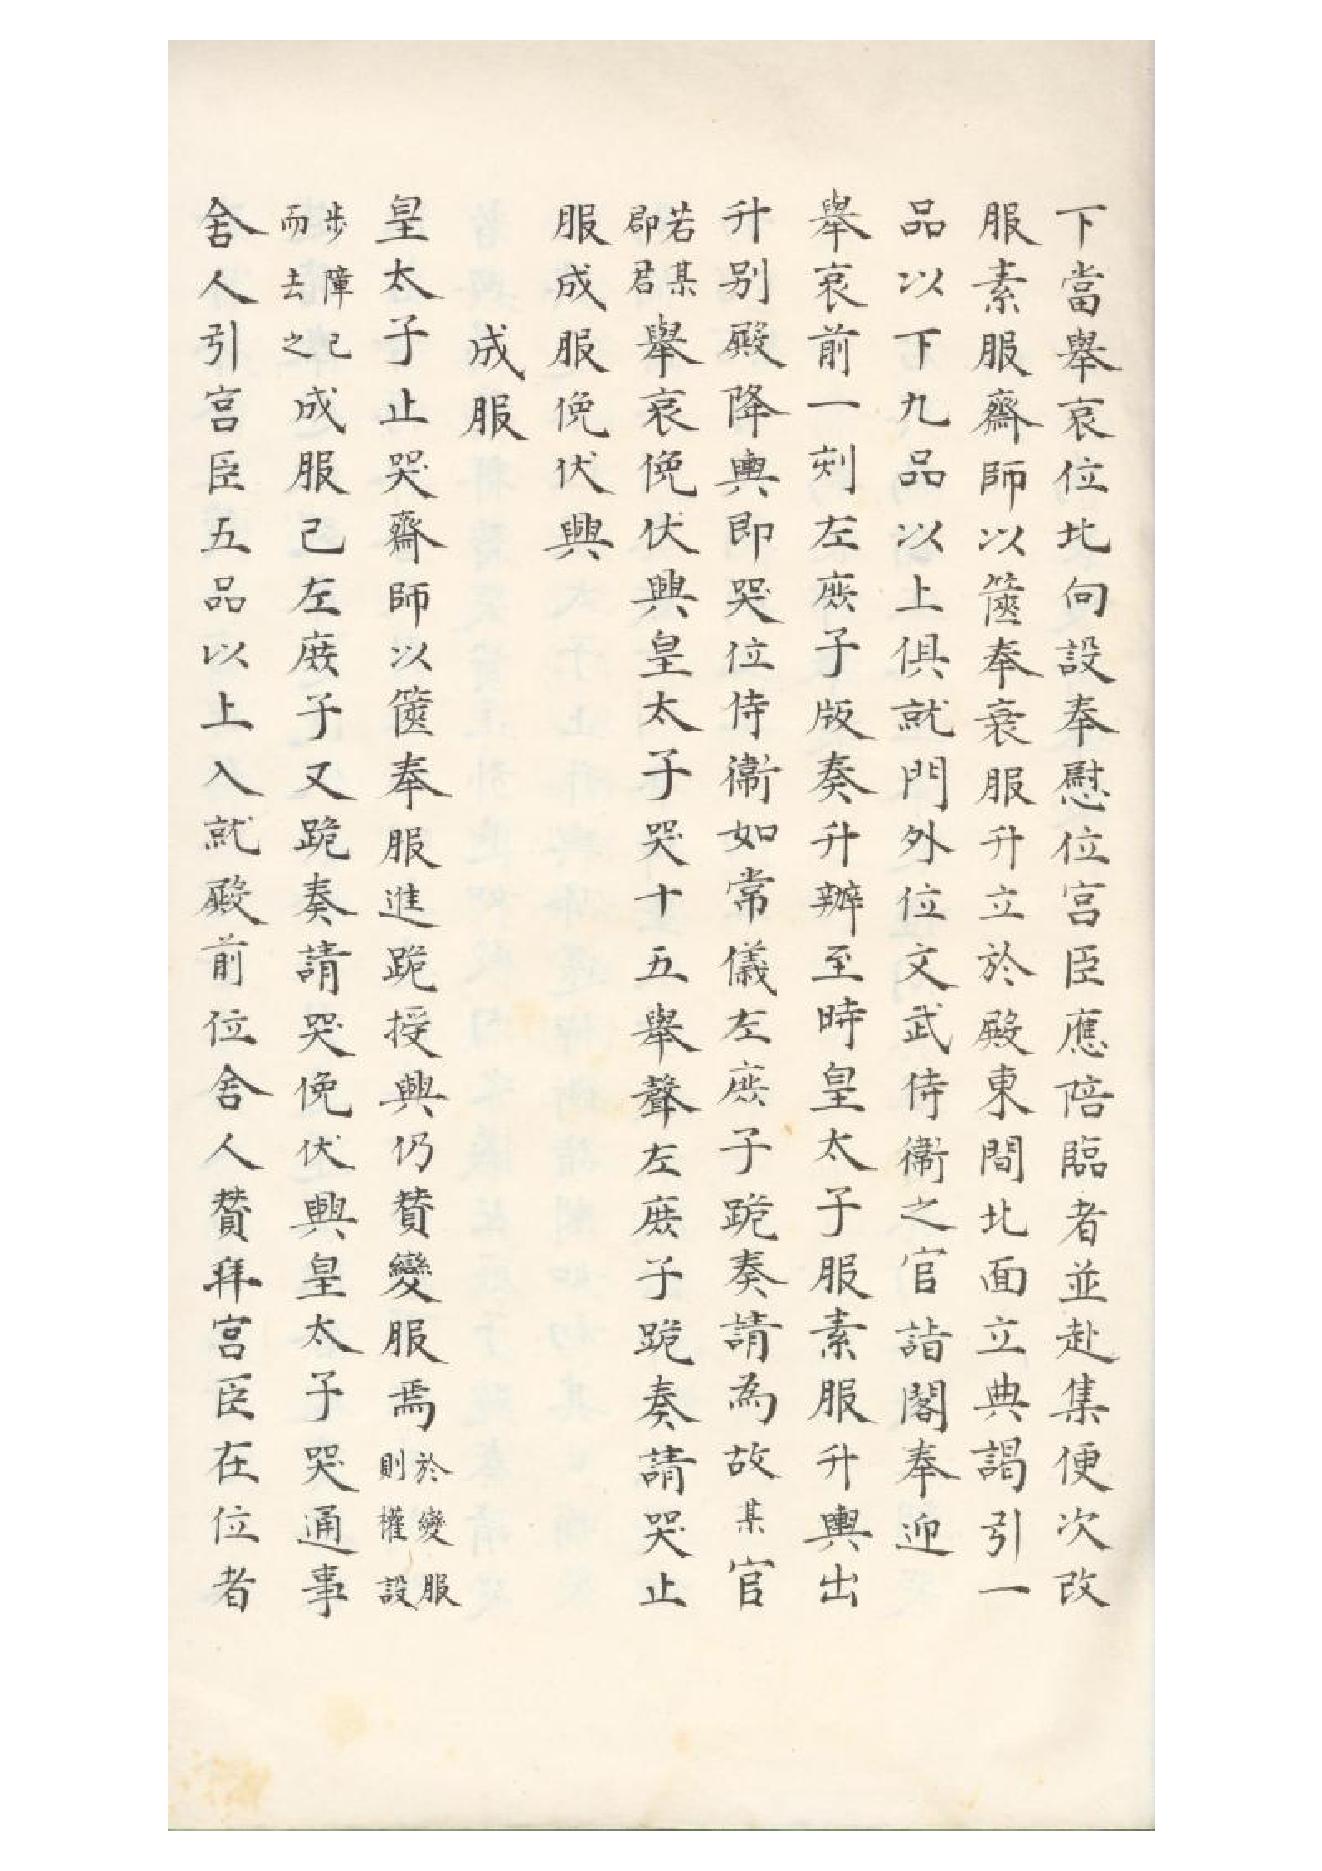 下當舉哀位北向設奉慰位宮臣應陪臨者並赴集便次改
服素服齋師以篋奉衰服升立於殿東間北面立典謁引一
品以下九品以上俱就門外位文武侍衞之官詣閤奉迎
舉哀前一刻左庶子版奏升辦至時皇太子服素服升輿出
升别殿降輿即哭位侍衞如常儀左庶子跪奏請為故某官
若某郡君舉哀俛伏興皇太子哭十五舉聲左庶子跪奏請哭止
服成服俛伏興
成服
皇太子止哭齋師以篋奉服進跪授興仍賛變服焉於變服則權設
步障已而去之成服己左庶子又跪奏請哭俛伏興皇太子哭通事
舍人引宮臣五品以上入就殿前位舍人賛拜宮臣在位者